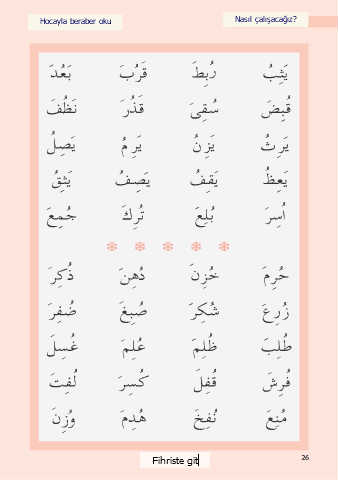 Hocayla beraber oku
Nasıl çalışacağız?
يَثِبُ رُبِطَ قَرُبَ بَعُدَ
قُبِضَ سُقِىَ قَذُرَ نَظُفَ
يَرِثُ يَزِنُ يَرِمُ يَصِلُ
يَعِظُ يَقِفُ يَصِفُ يَثِقُ
اُسِرَ بُلِعَ تُرِكَ جُمِعَ
حُرِمَ خُزِنَ دُهِنَ ذُكِرَ
زُرِعَ شُكِرَ صُبِغَ ضُفِرَ
طُلِبَ ظُلِمَ عُلِمَ غُسِلَ
فُرِشَ قُفِلَ كُسِرَ لُفِتَ
مُنِعَ نُفِخَ هُدِمَ وُزِنَ
Fihriste git
26